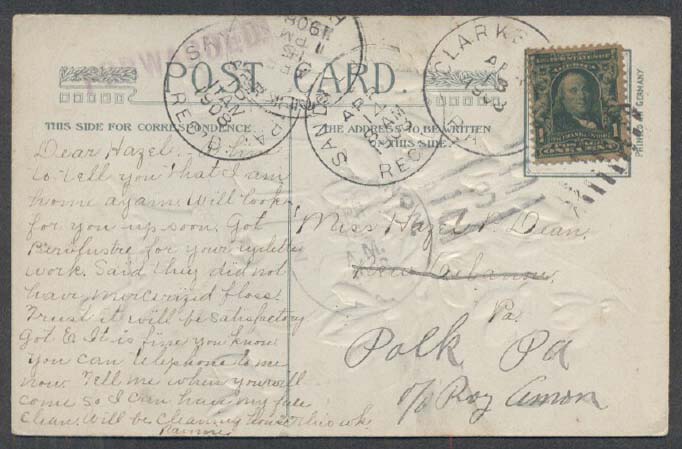 FORWARDED
POST CARD.
THIS SIDE FOR CORRESPONDENCE.
THE ADDRESS TO BE WRITTEN
ON THIS SIDE.
PRINTED IN GERMANY
CLARKS
PA
SANDY
REC'D.
1908
A.M.
3
1
Dear Hazel.
to tell you that I am
home again. Will look
for you up soon. Got
for your eyelet
work. Said they did not
have mercerized floss.
Trust it will be satisfactory
Got E. It is fine you know
you can telephone to me
now. Tell me when you will
come so I can have my face
clean. Will be cleaning house this wk.
Miss Hazel V. Dean.
New Lebanon.
Pa.
Polk Pa
c/o Roy Amon